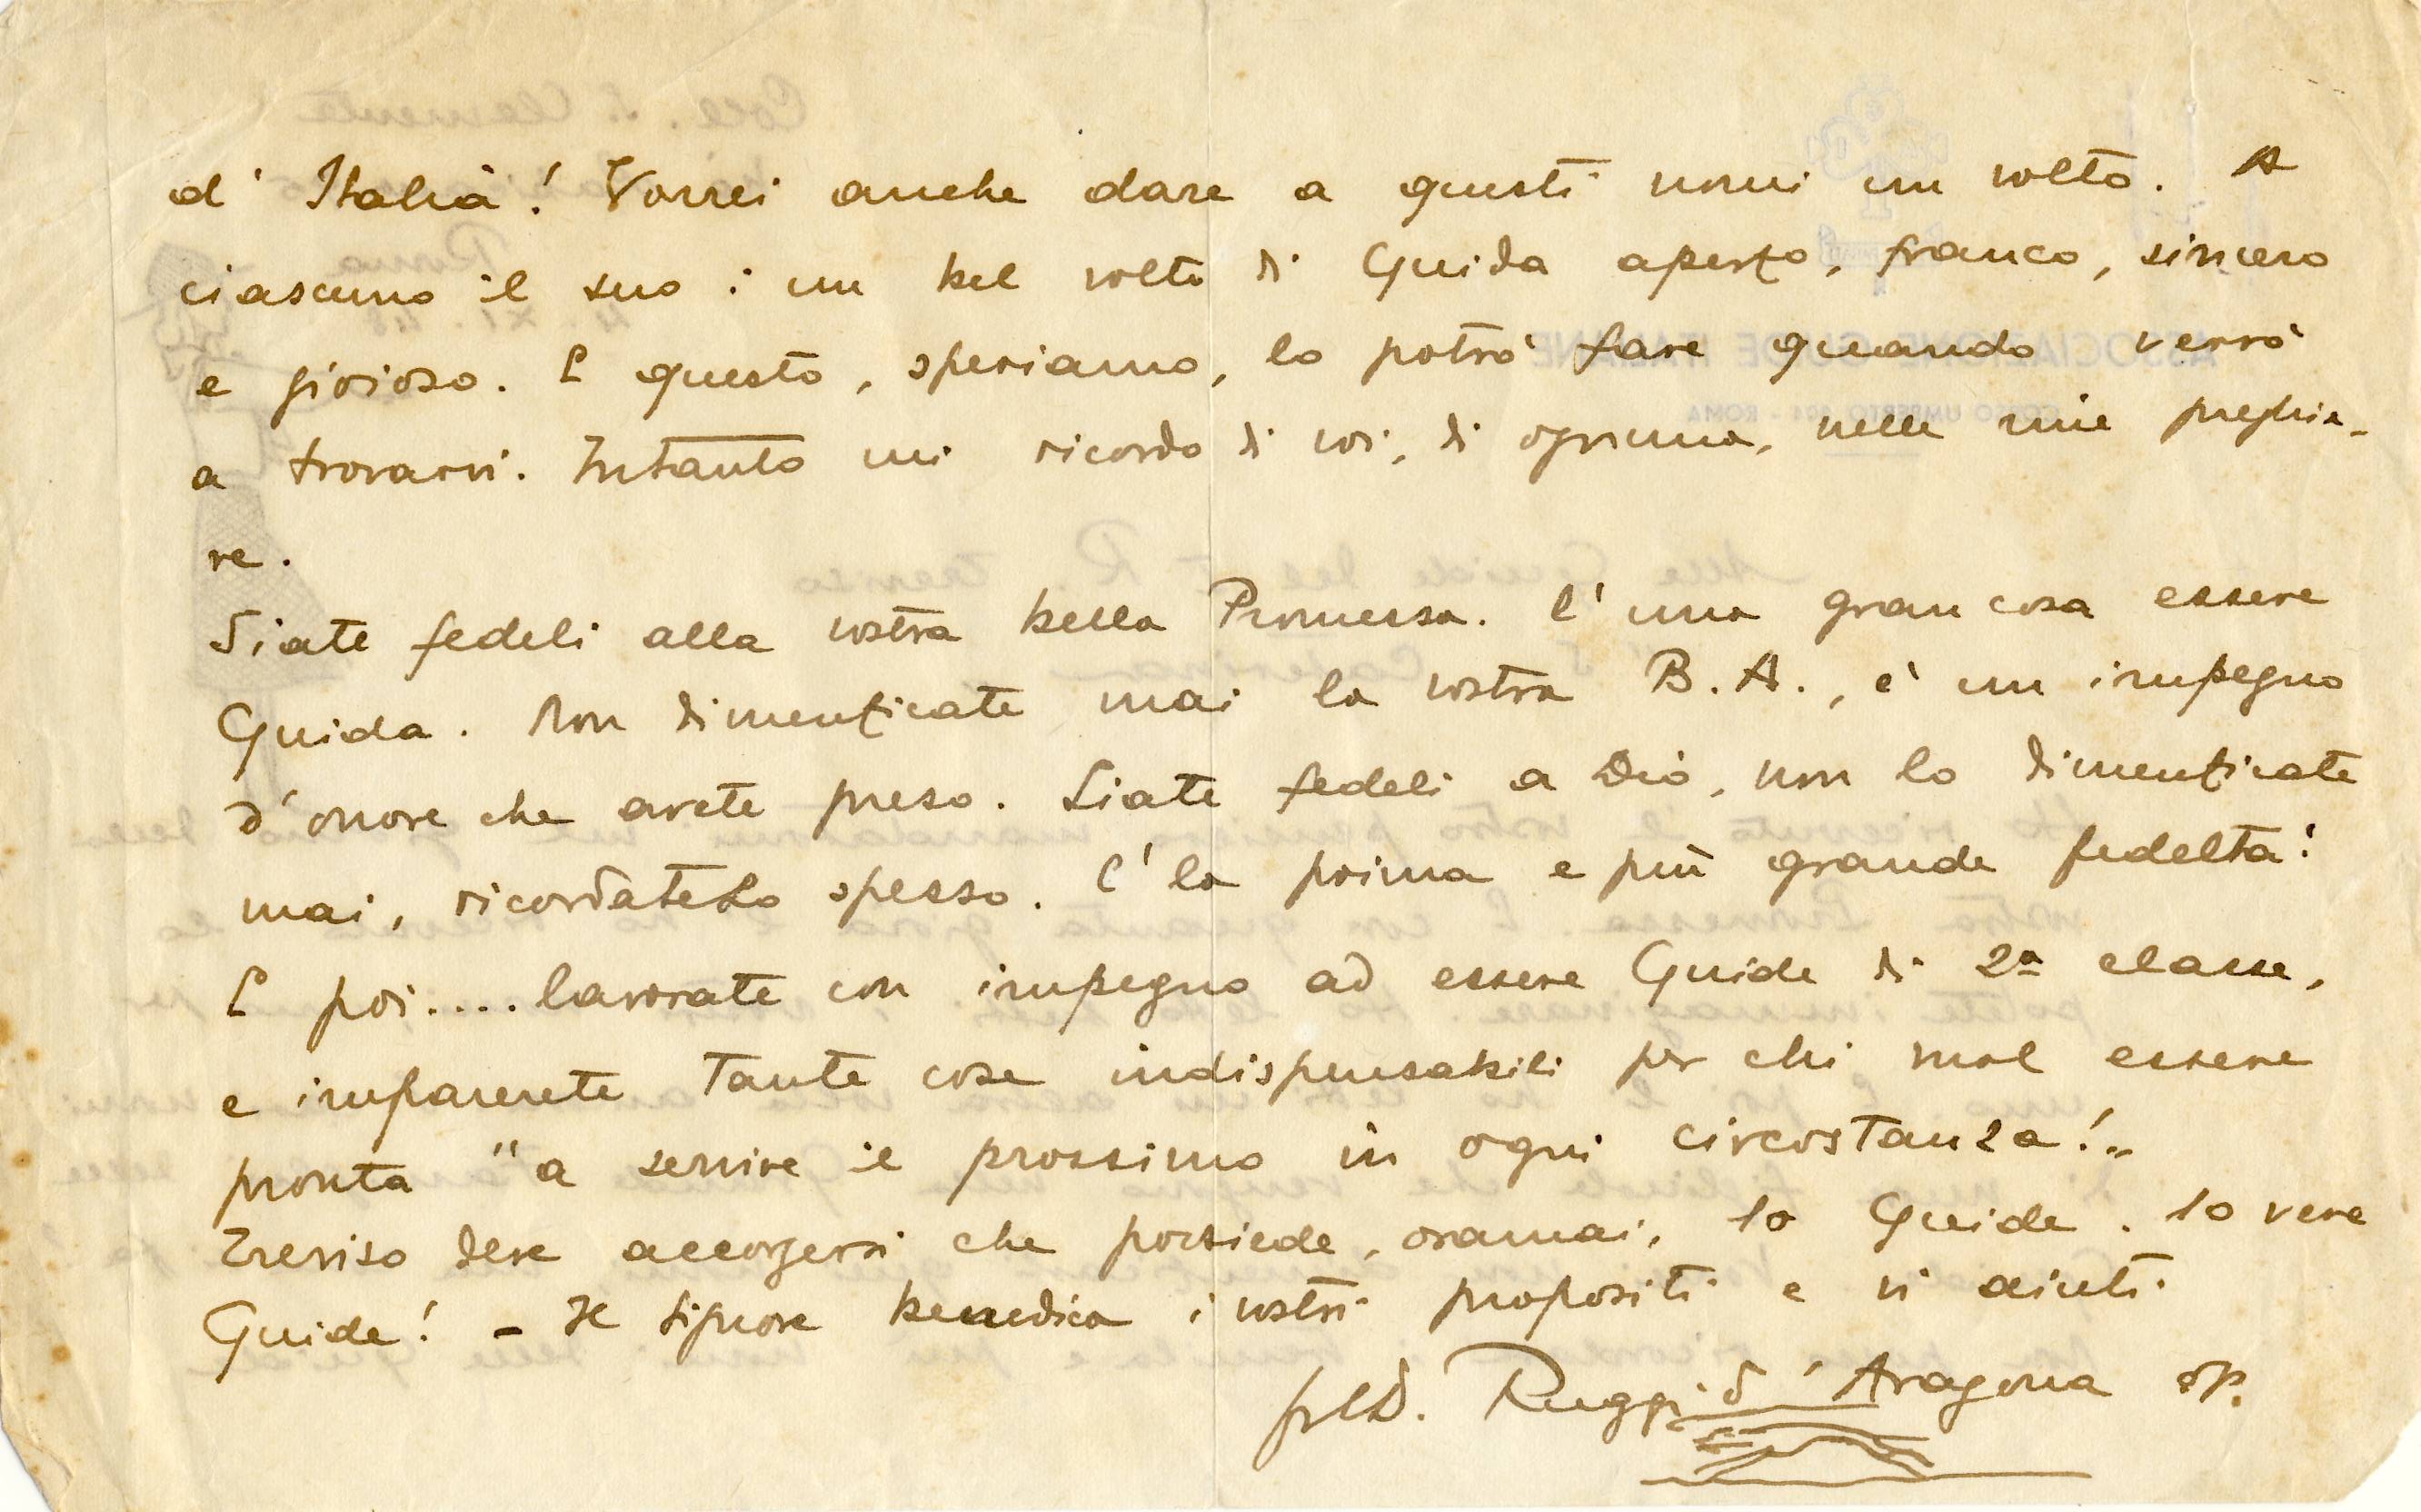 d'Italia! Vorrei anche dare a questi nomi un volto. A
ciascuno il suo: un bel volto di Guida aperto, franco, sincero
e gioioso. E questo, speriamo, lo potrò fare quando verrò
a trovarvi. Intanto mi ricordo di voi, di ognuna, nelle mie preghie-
re.
Siate fedeli alla vostra bella Promessa. E' una gran cosa essere
Guida. Non dimenticate mai la vostra B.A., è un impegno
d'onore che avete preso. Siate fedeli a Dio, non lo dimenticate
mai, ricordatelo spesso. E' la prima e più grande fedeltà!
E poi.... lavorate con impegno ad essere Guide di 2ª classe,
e imparerete tante cose indispensabili per chi vuol essere
pronta "a servire il prossimo in ogni circostanza!„
Treviso deve accorgersi che possiede, oramai, 10 Guide. 10 vere
Guide! - Il Signore benedica i vostri propositi e vi aiuti.
Ruggi d'Aragona OP.
ASSOCIAZIONE GUIDE ITALIANE
CORSO UMBERTO - ROMA
Roma